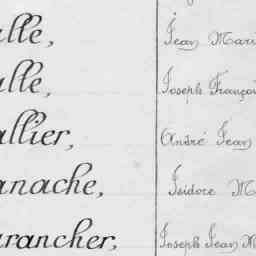 allé, Jean Mari
allé, Joseph Françoi
allier, André Jean
anache, Isidore M
arancher, Joseph Jean M